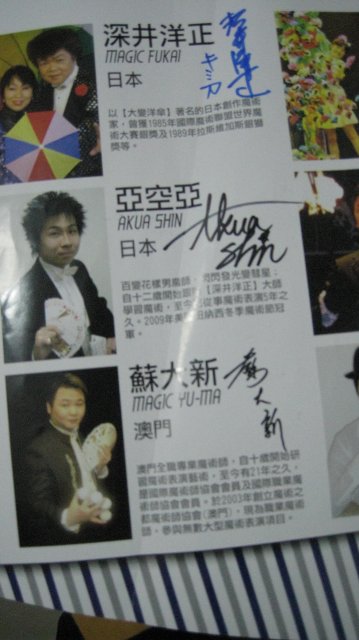 深井洋正
MAGIC FUKAI
キミカ
日本
以【大變洋傘】著名的日本創作魔術
家，曾獲1985年國際魔術聯盟世界魔
術大賽銀獎及1989年拉斯維加斯銀獅
獎等。
亞空亞
AKUA SHIN
Akua
Shin
日本
百變花樣男魔師，閃閃發光變彗星；
自十二歲開始跟隨【深井洋正】大師
學習魔術，至今已從事魔術表演5年之
久。2009年美國紐納西冬季魔術節冠
軍。
蘇大新
MAGIC YU-MA
蘇大新
澳門
澳門全職專業魔術師，自十歲開始研
習魔術表演藝術，至今有21年之久，
是國際魔術師協會會員及國際職業魔
術師協會會員。於2003年創立魔術之
都魔術師協會(澳門)，現為職業魔術
師，參與無數大型魔術表演項目。